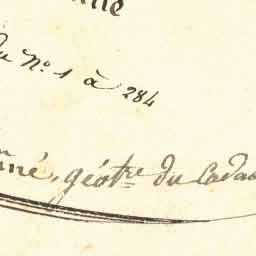 du N.° 1 à 284
géotre du Cadas